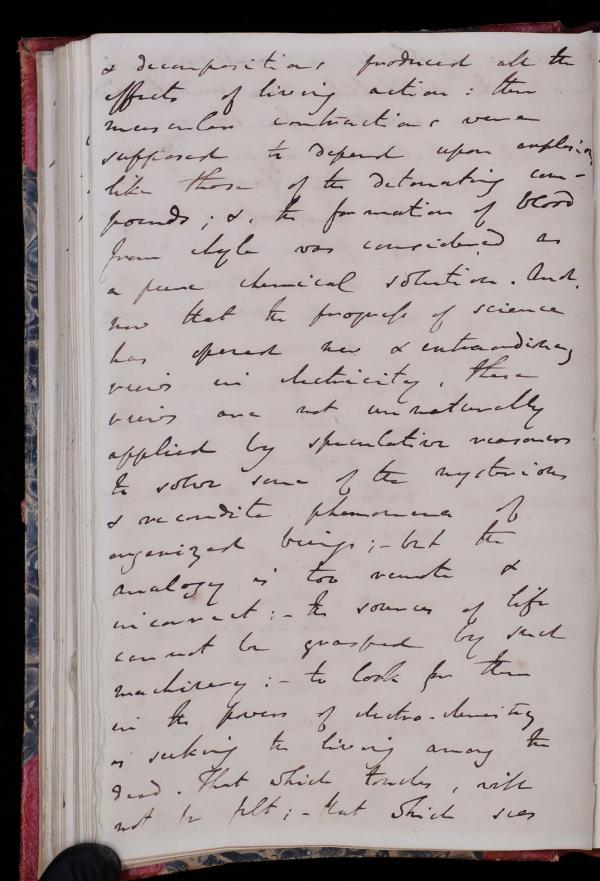 & decompositions produced all the
effects of living action: then
muscular contractions were
supposed to depend upon explosions
like those of the detonating com-
pounds; &. the formation of blood
from chyle was considered as
a pure chemical solution. And,
now that the progress of science
has opened new & extraordinary
views in electricity, these
views are not unnaturally
applied by speculative reasoners
to solve some of the mysterious
& recondite phenomena of
organized beings; - but the
analogy is too remote &
incorrect: - the sources of life
can not be grasped by such
machinery: - to look for them
in the powers of electro-chemistry
is seeking the living among the
dead. That which touches, will
not be felt; - that which sees